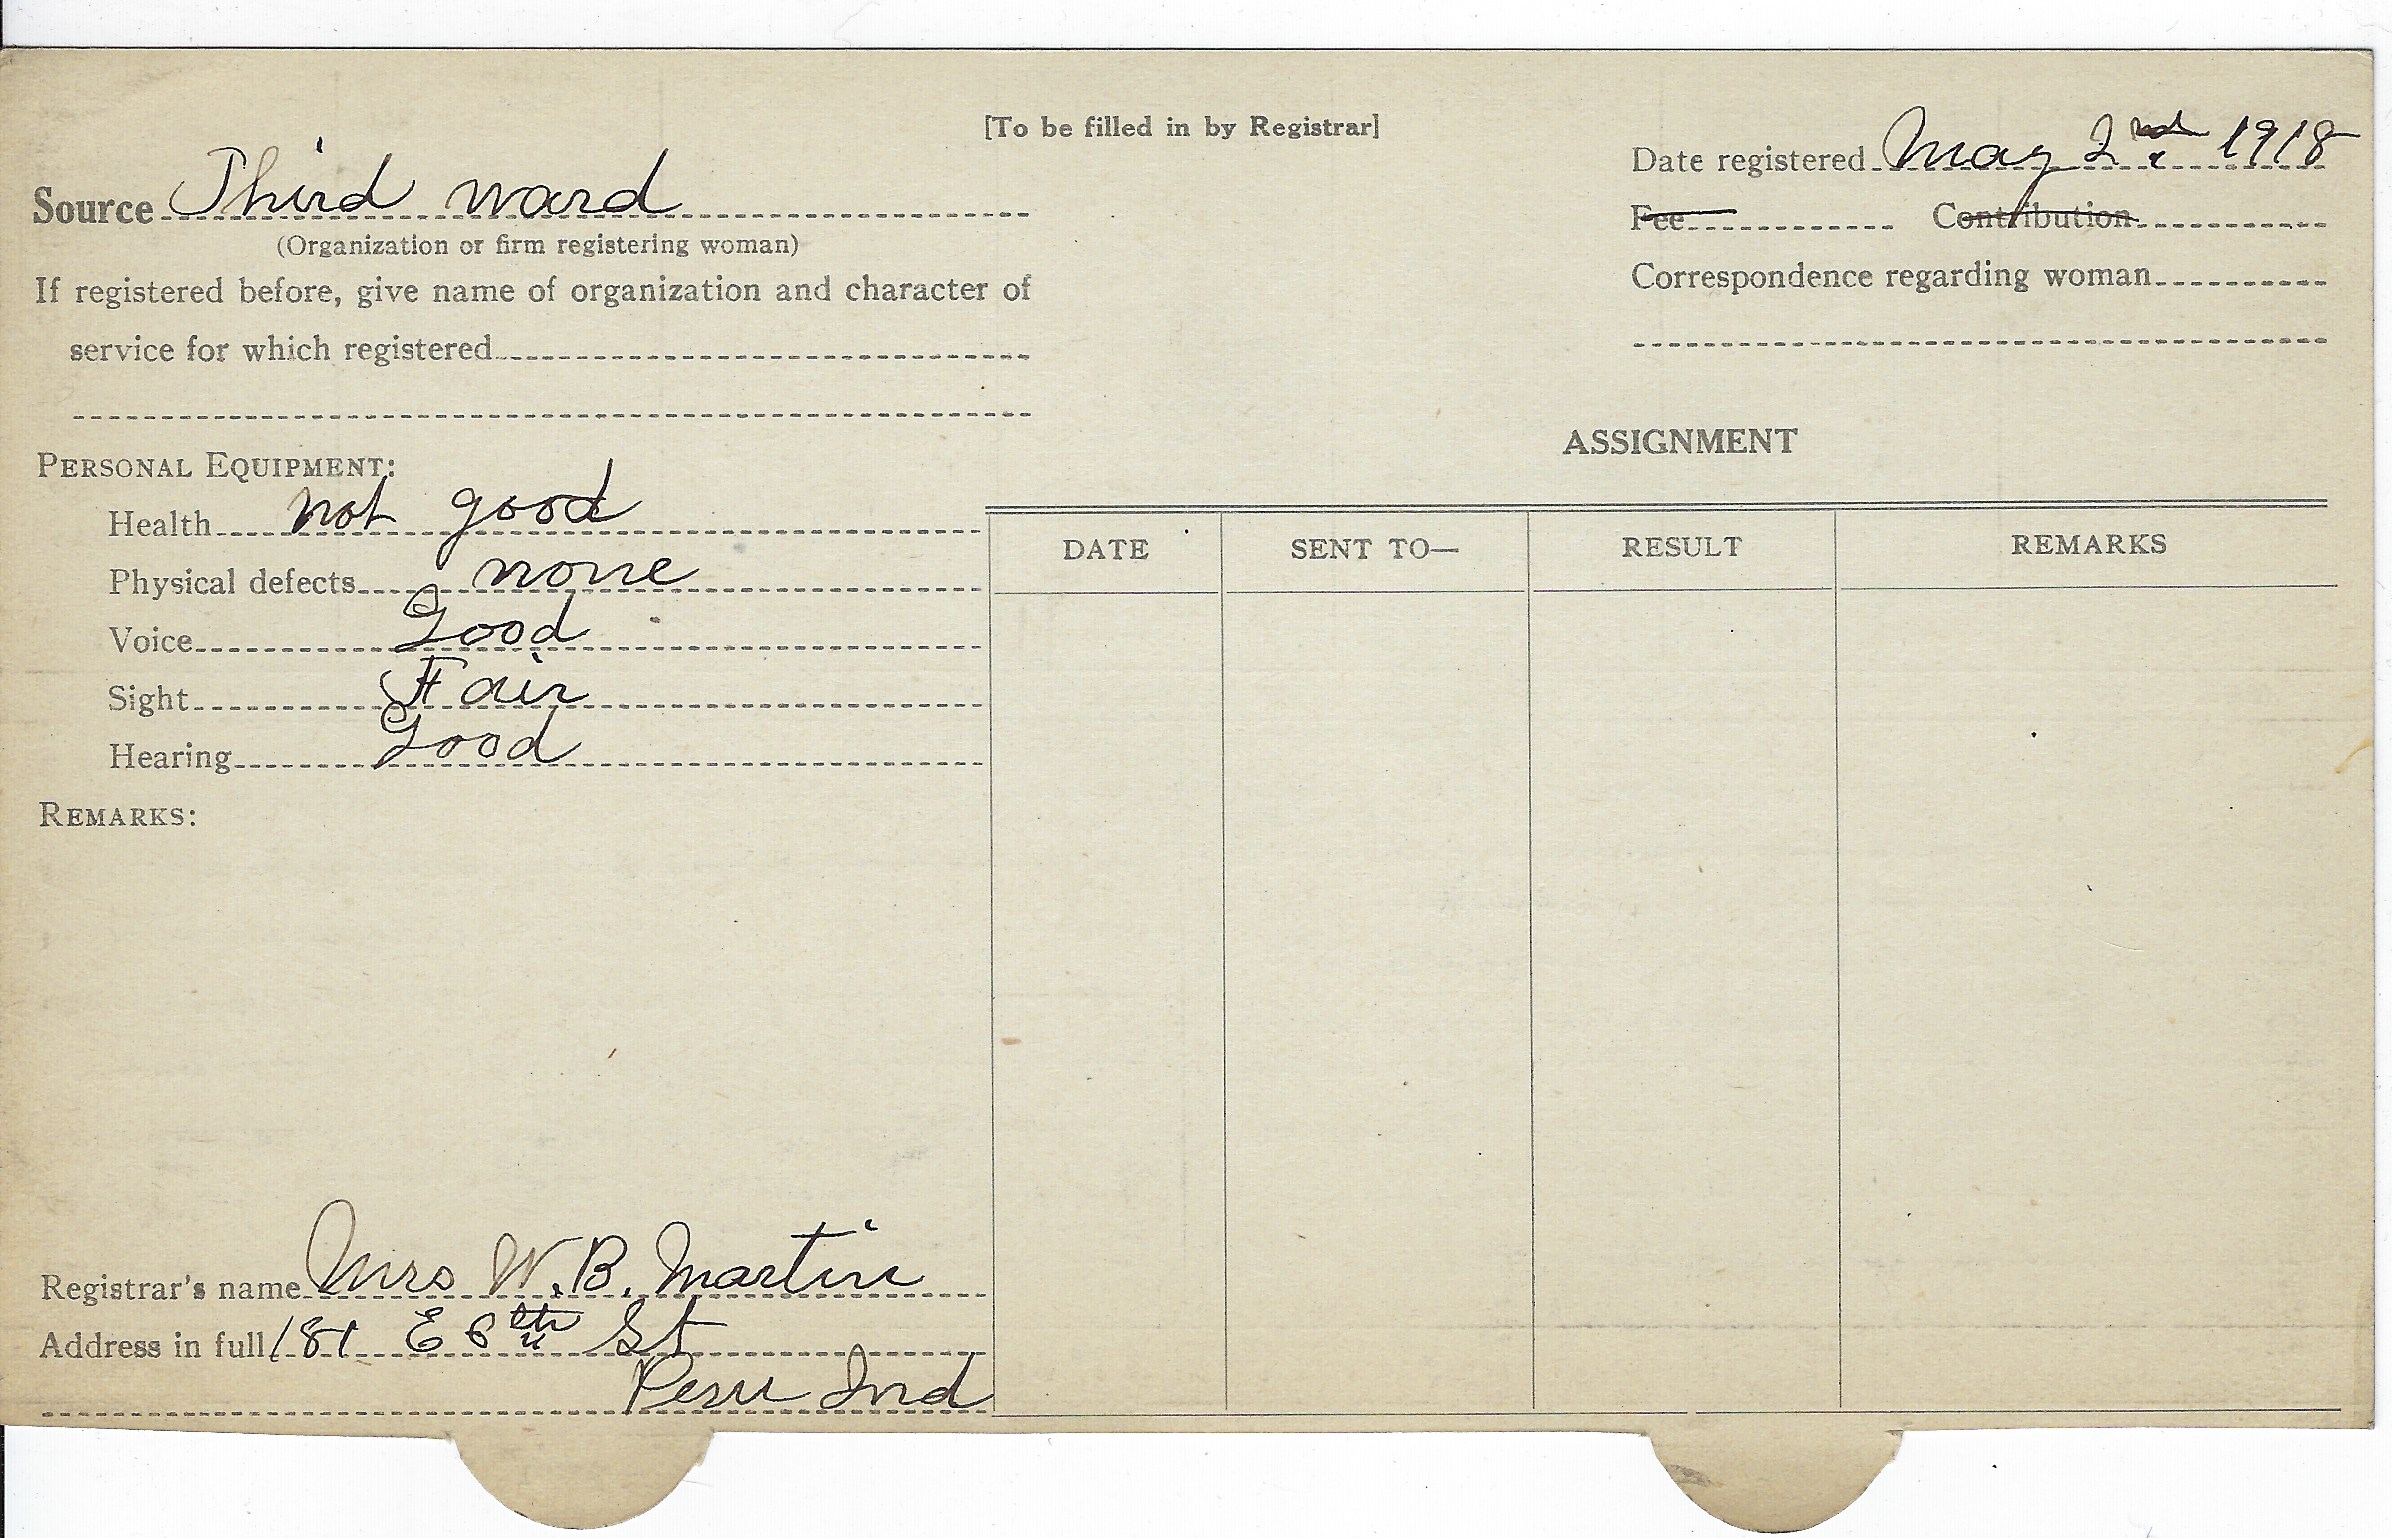 [To be filled in by Registrar]
Source Third ward
(Organization or firm registering woman)
If registered before, give name of organization and character of
service for which registered
Date registered May 2nd 1918
Fee Contribution
Correspondence regarding woman
PERSONAL EQUIPMENT:
Health not good
Physical defects none
Voice Good
Sight Fair
Hearing Good
REMARKS:
Registrar's name Mrs W. B. Martin
Address in full 181 E 6th St
Peru Ind
ASSIGNMENT
DATE SENT TO— RESULT REMARKS